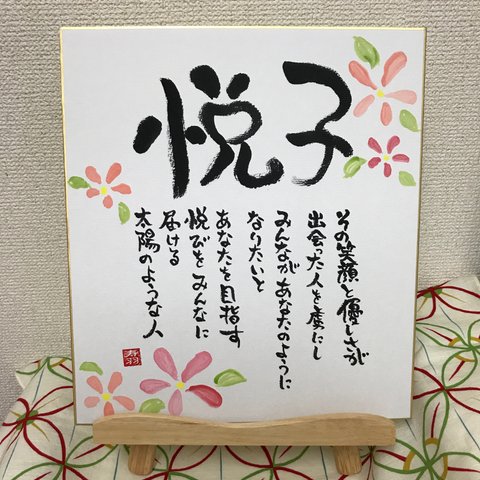 悦子
その笑顔と優しさが
出会った人を虜にし
みんながあなたのように
なりたいと
あなたを目指す
悦びをみんなに
届ける
太陽のような人